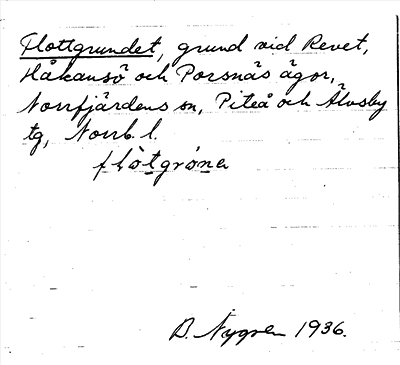 Flottgrundet, grund vid Revet,
Håkansö och Porsnäs ägor,
Norrfjärdens sn, Piteå och Älvsby
tg, Norrb. l.
flòtgróne
D. Nygren 1936.